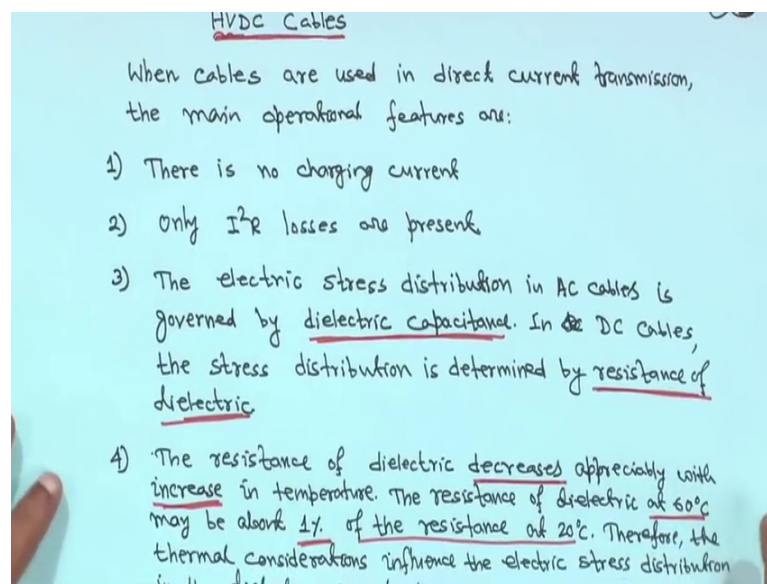 HVDC Cables
When cables are used in direct current transmission,
the main operational features are:
1) There is no charging current
2) Only I²R losses are present
3) The electric stress distribution in AC cables is
governed by dielectric capacitance. In DC Cables,
the stress distribution is determined by resistance of
dielectric
4) The resistance of dielectric decreases appreciably with
increase in temperature. The resistance of dielectric at 60°C
may be about 1% of the resistance at 20°C. Therefore, the
thermal considerations influence the electric stress distribution